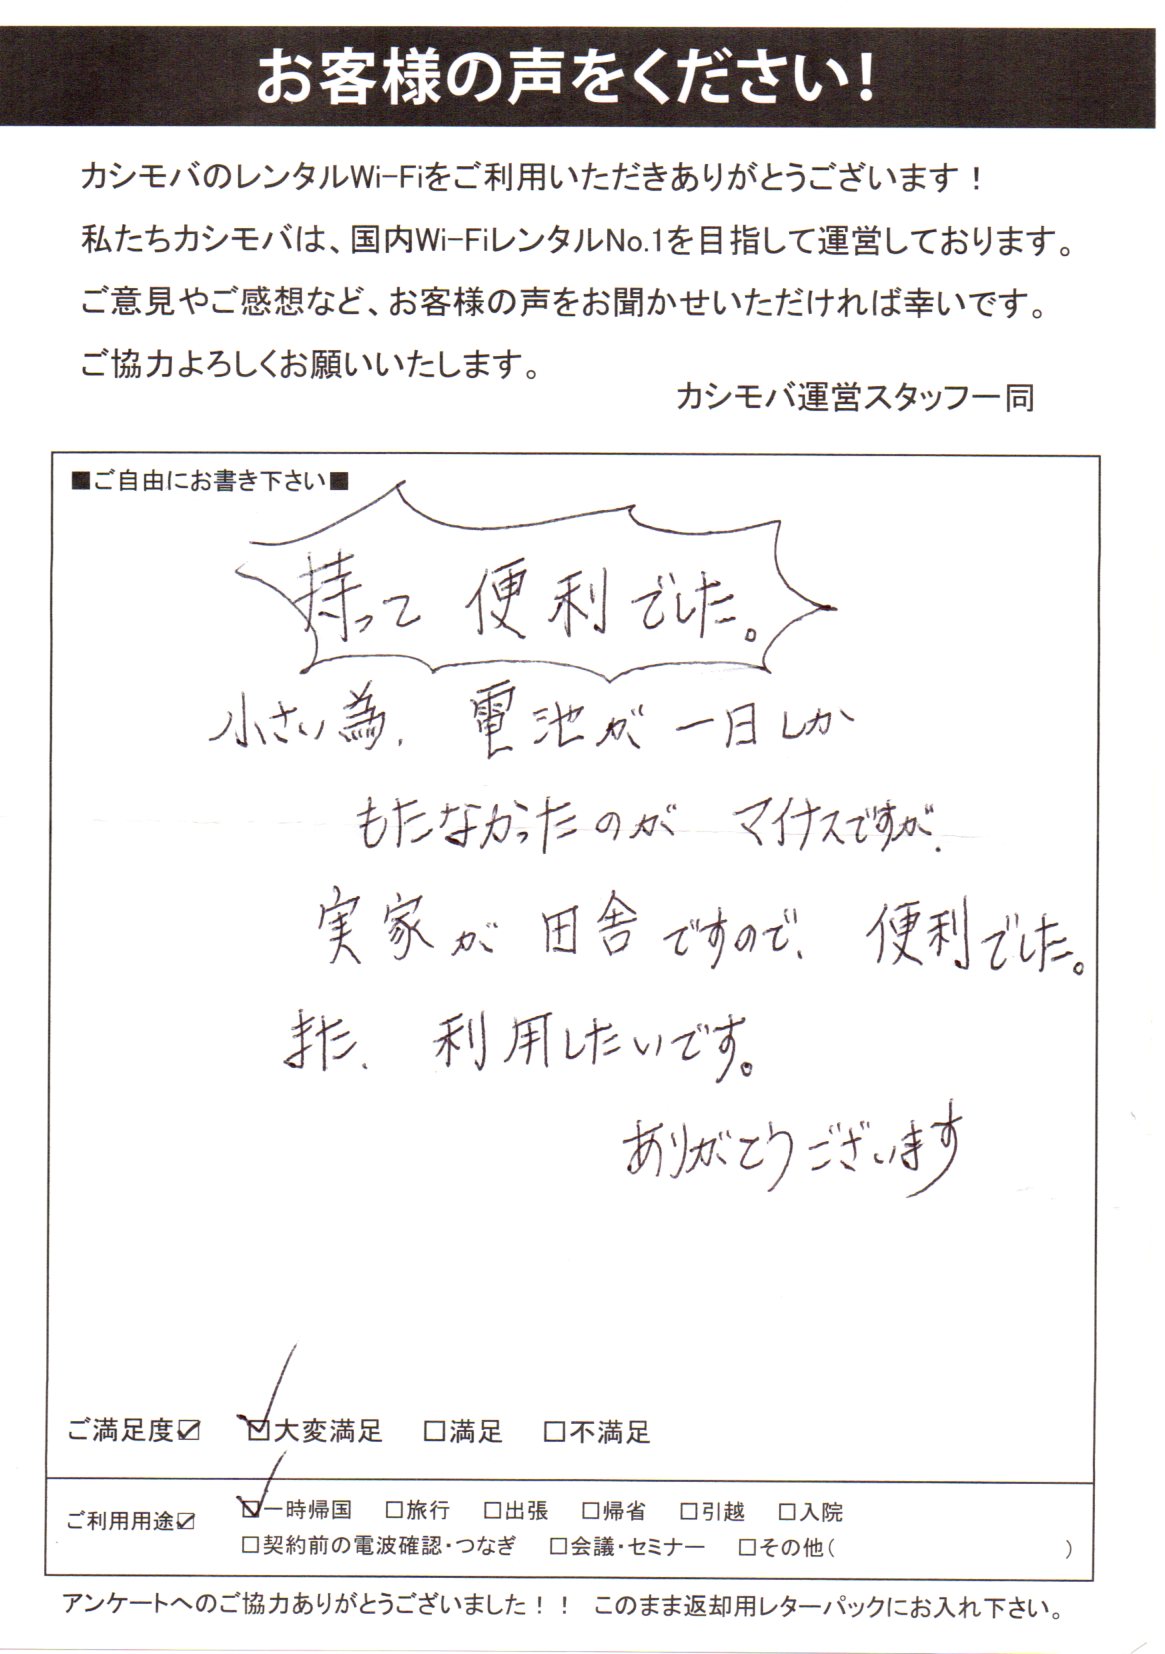 お客様の声をください！
カシモバのレンタルWi-Fiをご利用いただきありがとうございます！
私たちカシモバは、国内Wi-FiレンタルNo.1を目指して運営しております。
ご意見やご感想など、お客様の声をお聞かせいただければ幸いです。
ご協力よろしくお願いいたします。
カシモバ運営スタッフ一同
■ご自由にお書き下さい■
持って 便利でした。
小さい為、電池が一日しか
もたなかったのが マイナスですが、
実家が田舎ですので、便利でした。
また、利用したいです。
ありがとうございます
ご満足度☑ ☑大変満足 □満足 □不満足
ご利用用途☑ ☑一時帰国 □旅行 □出張 □帰省 □引越 □入院
□契約前の電波確認・つなぎ □会議・セミナー □その他( )
アンケートへのご協力ありがとうございました！！ このまま返却用レターパックにお入れ下さい。